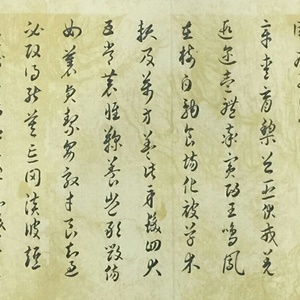 章愛育黎首臣伏戎羌
遐邇壹體率賓歸王鳴鳳
在樹白駒食場化被草木
賴及萬方蓋此身髮四大
五常恭惟鞠養豈敢毀傷
女慕貞絜男效才良知過
必改得能莫忘罔談彼短